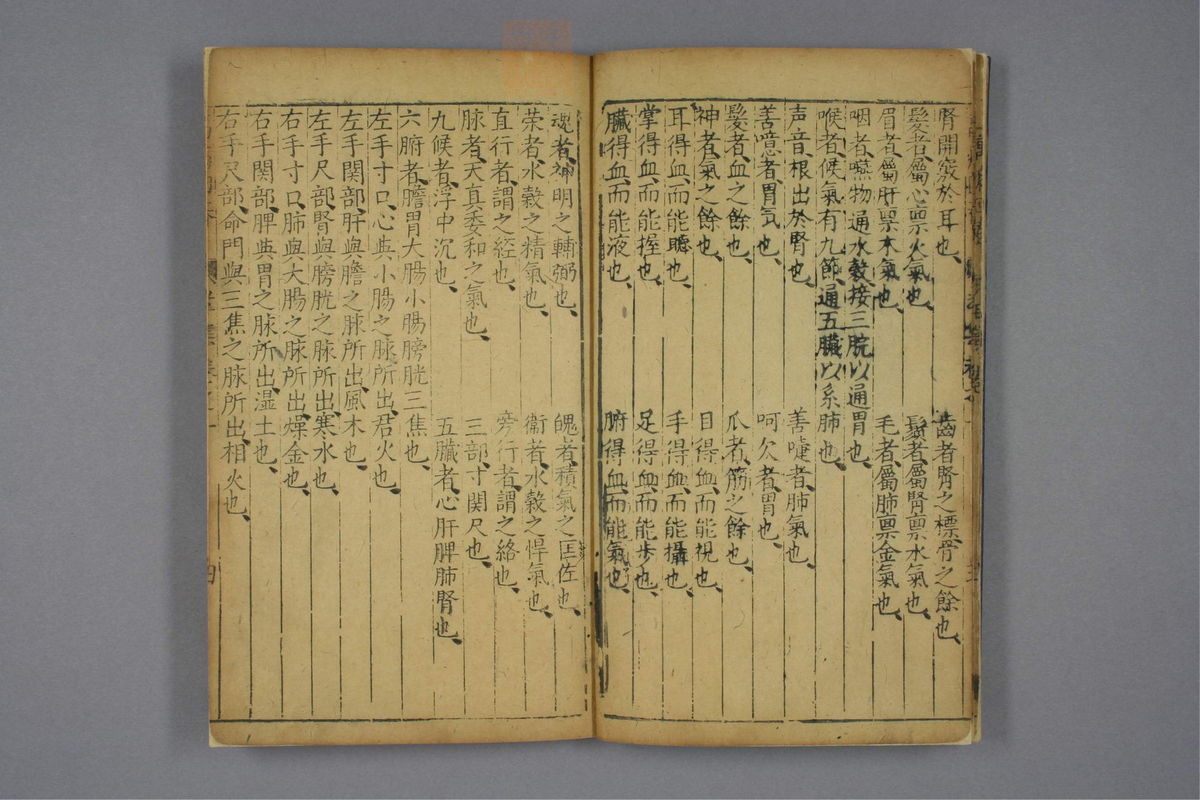 腎開竅於耳也、 齒者腎之標骨之餘也、
髮者屬心禀火氣也、 鬚者屬腎禀水氣也、
眉者屬肝禀木氣也、 毛者屬肺禀金氣也、
咽者嚥物通水穀接三脘以通胃也、
喉者候氣有九節通五臟以系肺也、
声音根出於腎也、 善嚏者肺氣也、
善噫者胃氣也、 呵欠者胃也、
髮者血之餘也、 爪者筋之餘也、
神者氣之餘也、 目得血而能視也、
耳得血而能聽也、 手得血而能攝也、
掌得血而能握也、 足得血而能步也、
臟得血而能液也、 腑得血而能氣也、
魂者神明之輔弼也、 魄者積氣之匡佐也、
荣者水穀之精氣也、 衛者水穀之悍氣也、
直行者謂之經也、 旁行者謂之絡也、
脉者天真委和之氣也、 三部寸関尺也、
九候者浮中沉也、 五臟者心肝脾肺腎也、
六腑者膽胃大腸小腸膀胱三焦也、
左手寸口心與小腸之脉所出君火也、
左手関部肝與膽之脉所出風木也、
左手尺部腎與膀胱之脉所出寒水也、
右手寸口肺與大腸之脉所出燥金也、
右手関部脾與胃之脉所出湿土也、
右手尺部命門與三焦之脉所出相火也、
四